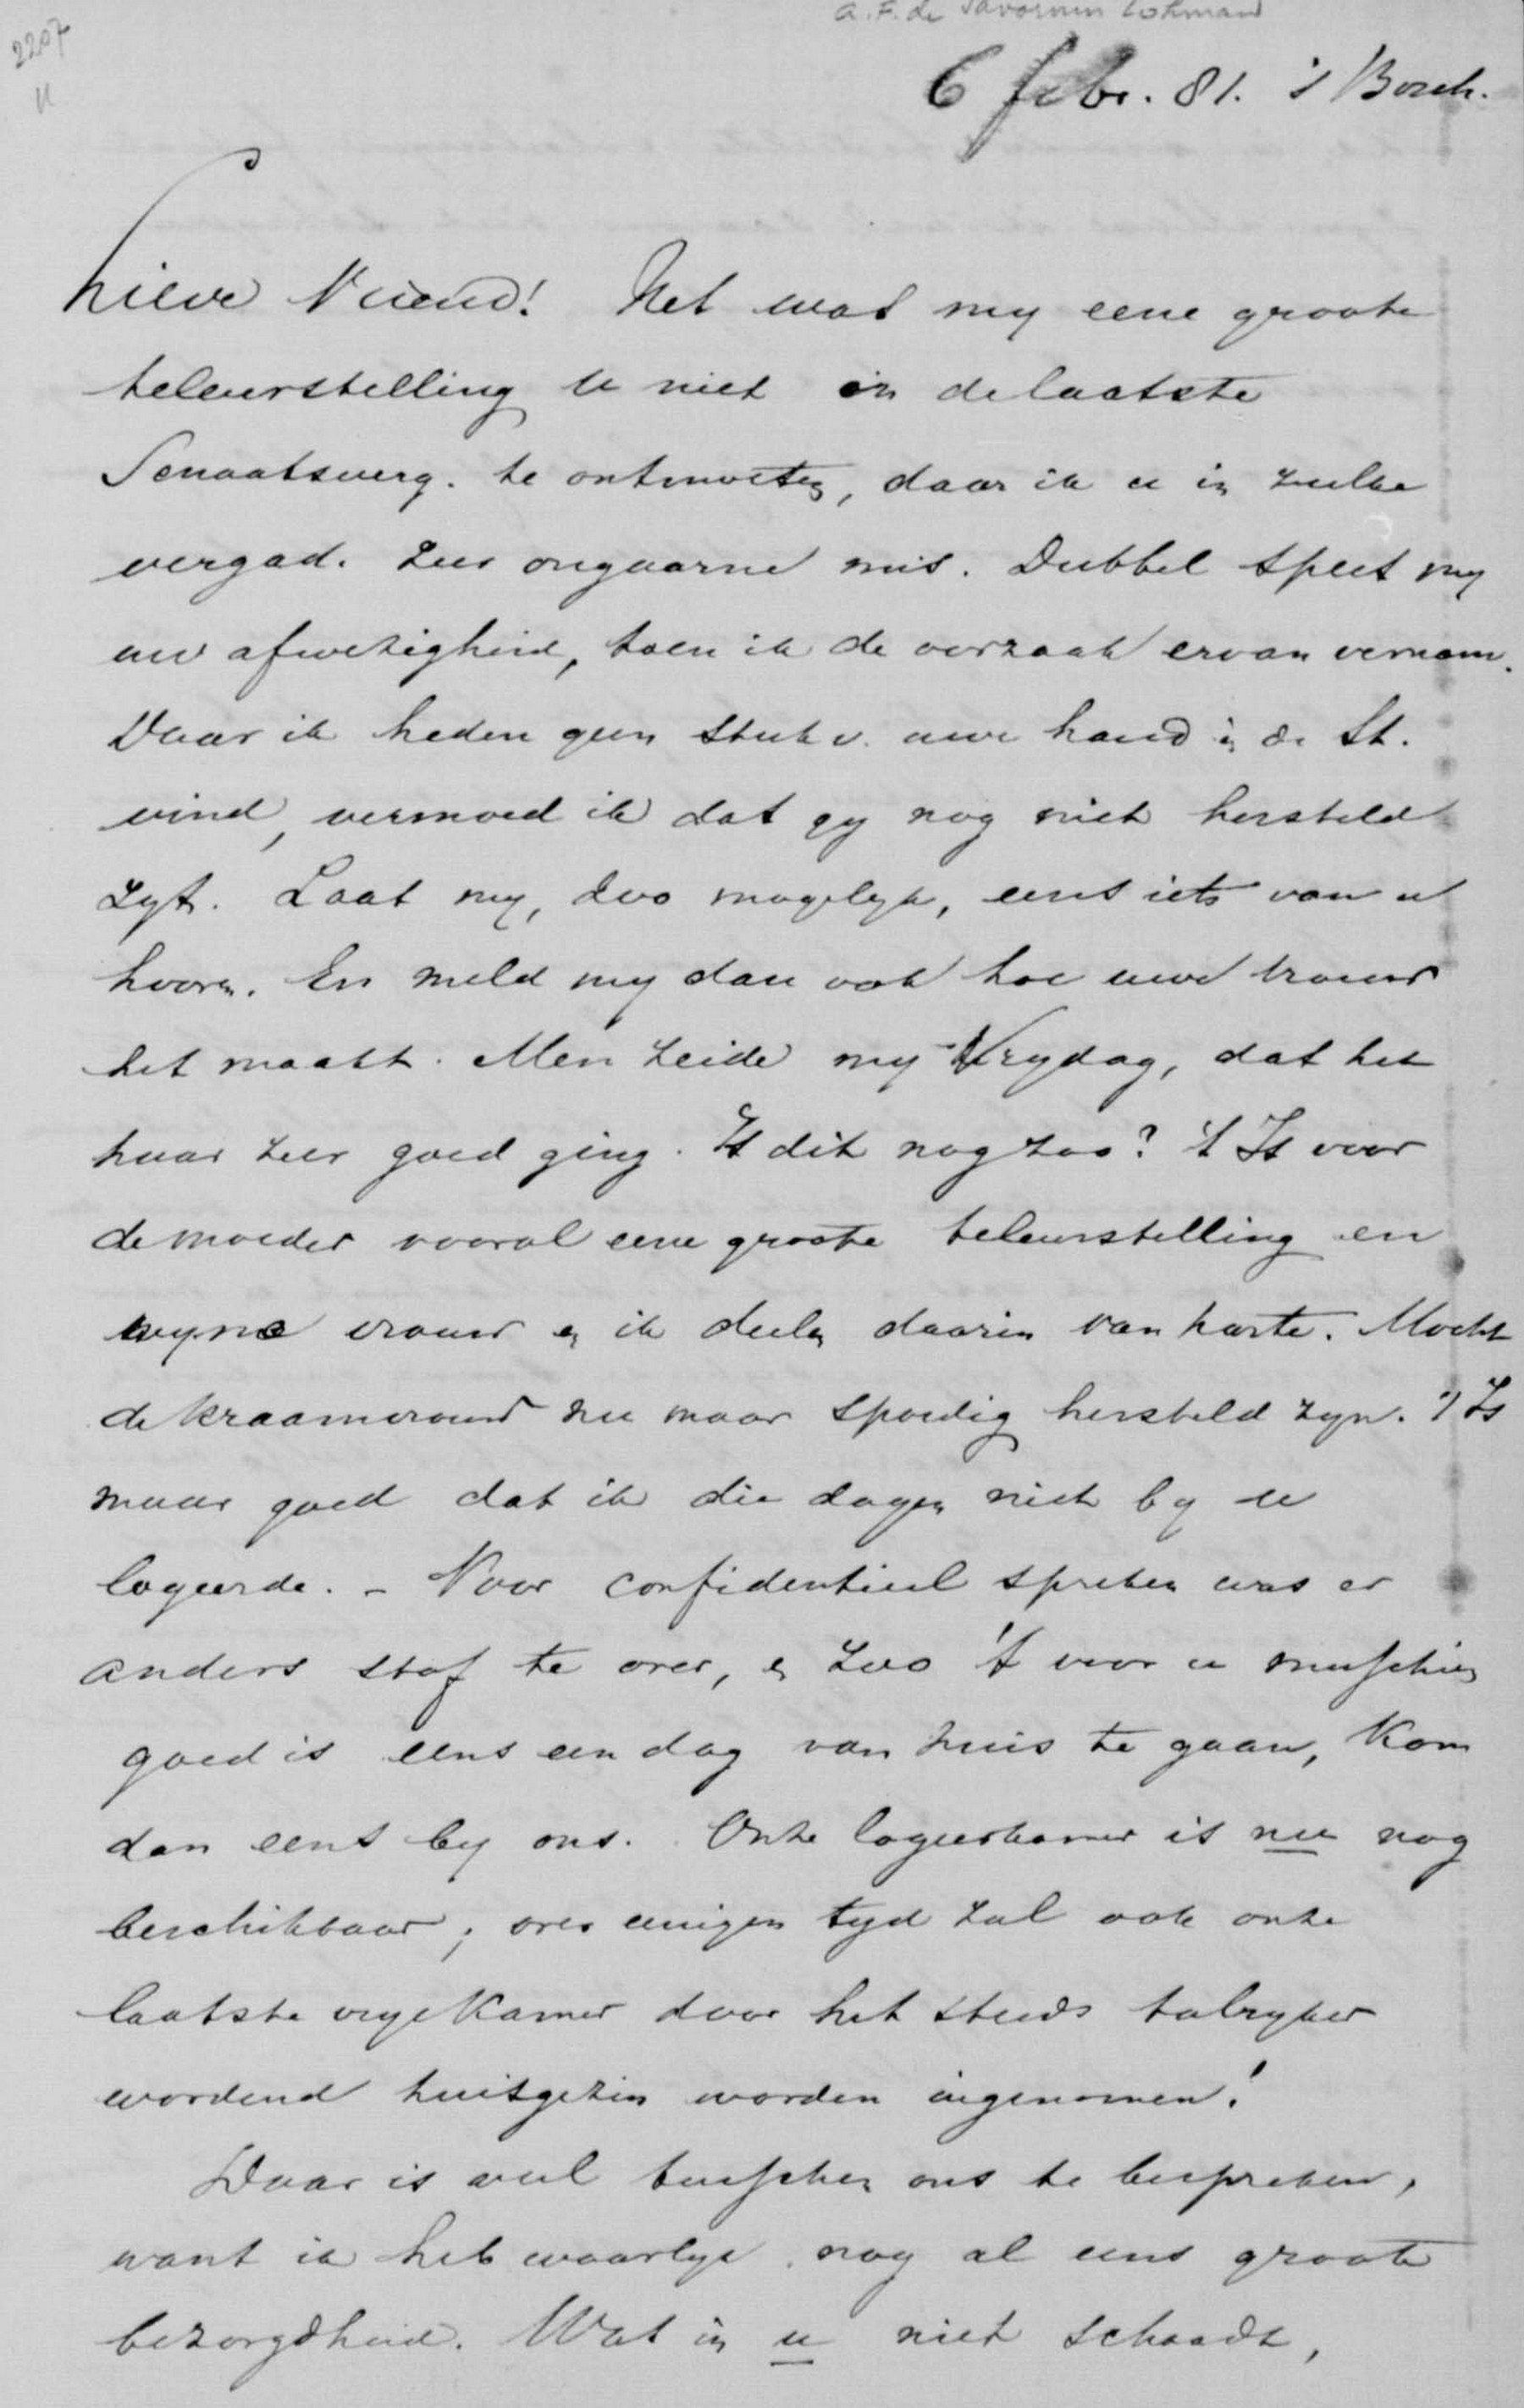 A.F. de Savornin Lohman
2207
6 febr. 81. 's Bosch.
Lieve Vriend! Het was my eene groote
teleurstelling u niet in de laatste
Senaatsverg. te ontmoeten, daar ik u in zulke
vergad. zeer ongaarne mis. Dubbel speet my
uw afwezigheid, toen ik de oorzaak ervan vernam.
Daar ik heden geen stuk v. uwe hand in de St.
vind, vermoed ik dat gy nog niet hersteld
zyt. Laat my, zoo mogelyk, eens iets van u
hooren. En meld my dan ook hoe uwe vrouw
het maakt. Men zeide my Vrydag, dat het
haar zeer goed ging. Is dit nog zoo? 't Is voor
de moeder vooral eene groote teleurstelling en
myne vrouw en ik deelen daarin van harte. Mocht
de kraamvrouw nu maar spoedig hersteld zyn. 't Is
maar goed dat ik die dagen niet by u
logeerde. - Voor confidentieel spreken was er
anders stof te over, en zoo 't voor u misschien
goed is eens een dag van huis te gaan, kom
dan eens by ons. Onze logeerkamer is nu nog
beschikbaar; over eenigen tyd zal ook onze
laatste vrye kamer door het steeds talryker
wordend huisgezin worden ingenomen!
Daar is veel tusschen ons te bespreken,
want ik heb waarlyk nog al eens groote
bezorgdheid. Wat in u niet schaadt,